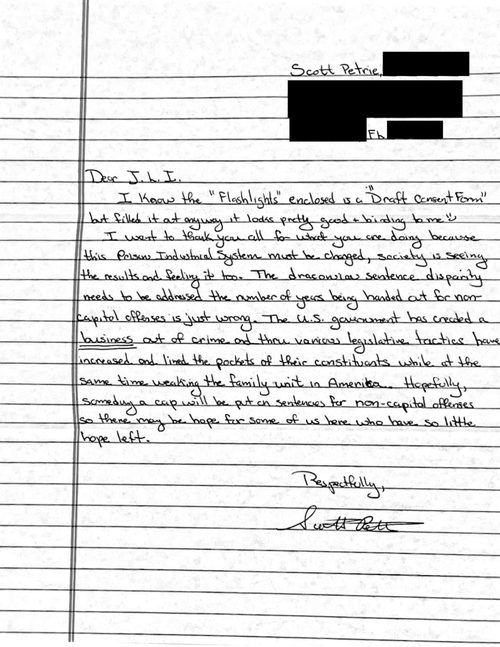 Scott Petrie,
Fl.
Dear J.L.I.
I Know the "Flashlights" enclosed is a "Draft Consent Form"
but filled it out anyway it looks pretty good + binding to me
I want to thank you all for what you are doing because
this Prison Industrial System must be changed, society is seeing
the results and feeling it too. The draconian sentence disparity
needs to be addressed the number of years being handed out for non-
capitol offenses is just wrong. The U.S. government has created a
business out of crime and thru various legislative tactics have
increased and lined the pockets of their constituents while at the
same time weaking the family unit in Amerika. Hopefully,
someday a cap will be put on sentences for non-capitol offenses
so there may be hope for some of us here who have so little
hope left.
Respectfully,
Scott Petrie